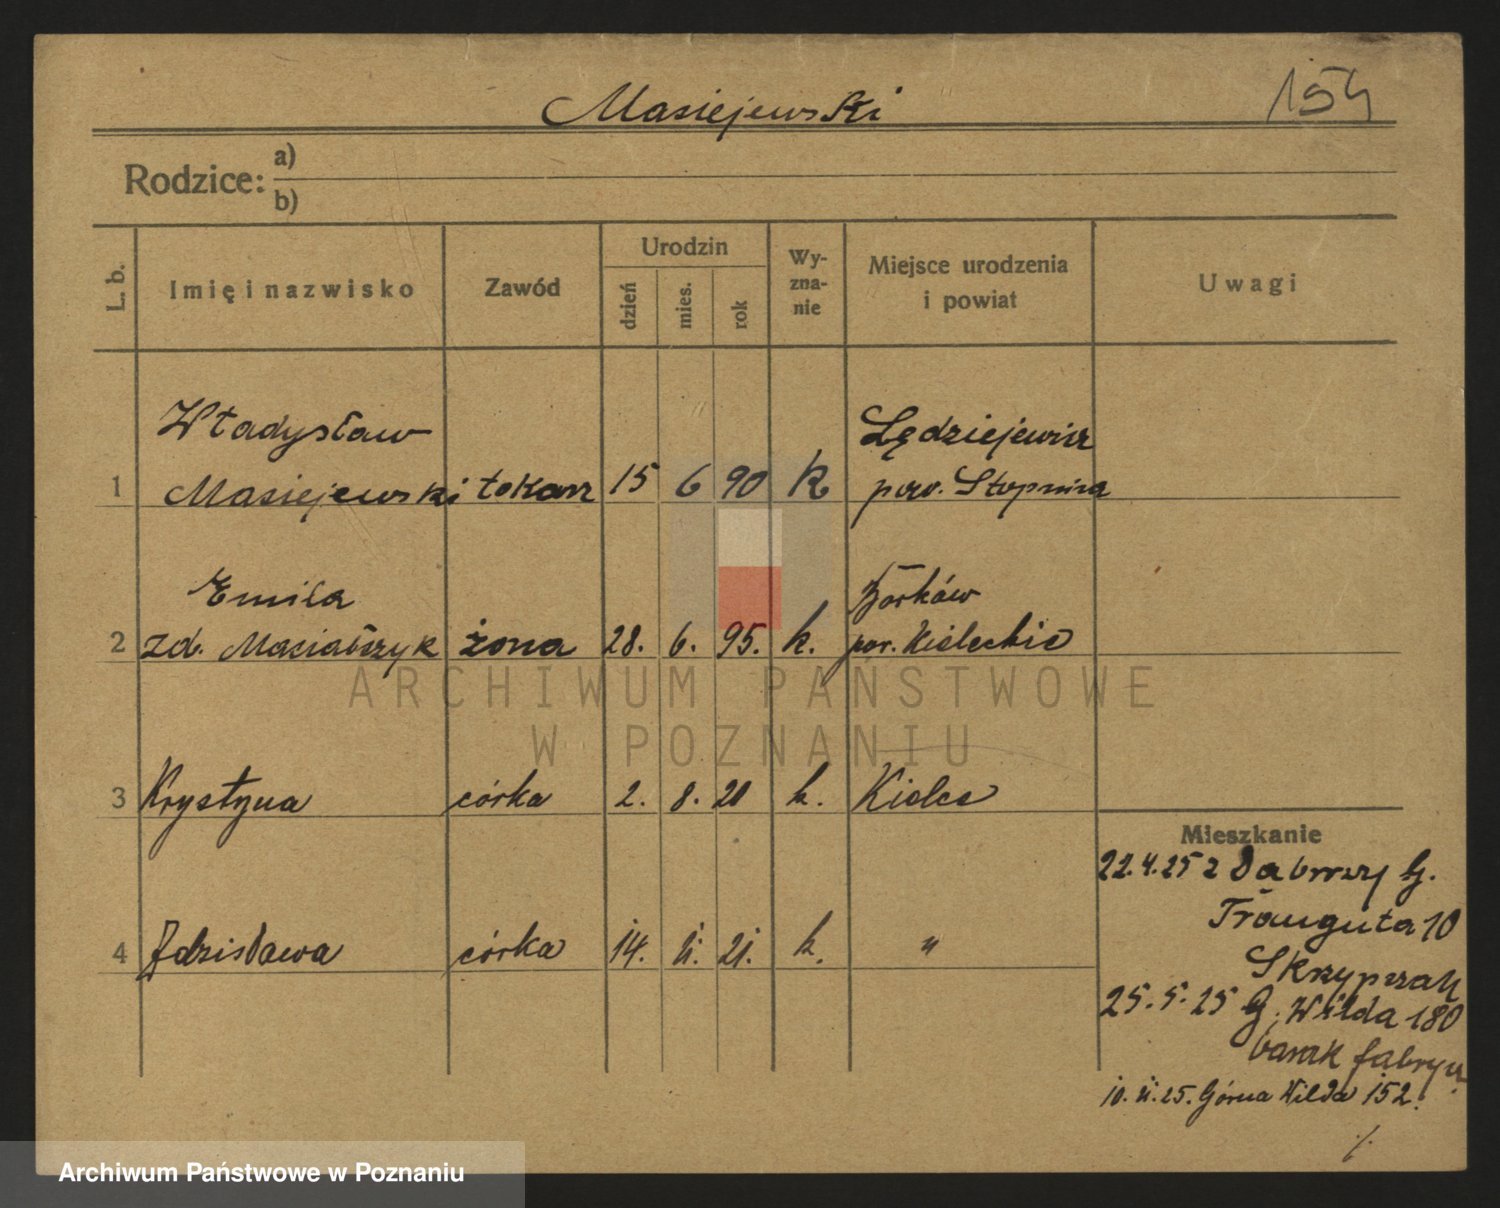 Masiejewski
154
Rodzice:
a)
b)
L. b.
Imię i nazwisko
Zawód
Urodzin
dzień
mies.
rok
Wy-
zna-
nie
Miejsce urodzenia
i powiat
Uwagi
Władysław
1 Masiejewski tokarz 15 6 90 k
Lędziejewisz
pow. Stopnica
Emila
2 zd. żona 28. 6. 95. k.
Borków
pow. Kieleckie
3 Krystyna córka 2. 8. 20 k. Kielce
4 Zdzisława córka 14. 11. 21. k. "
Mieszkanie
22.4.25 z Dąbrowy G.
Trauguta 10
Skrzypczak
25.5.25 G. Wilda 180
barak fabrycz.
10.11.25. Górna Wilda 152.
ARCHIWUM PAŃSTWOWE
W POZNANIU
Archiwum Państwowe w Poznaniu